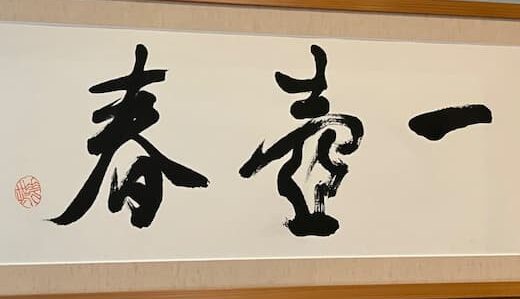 一壺春